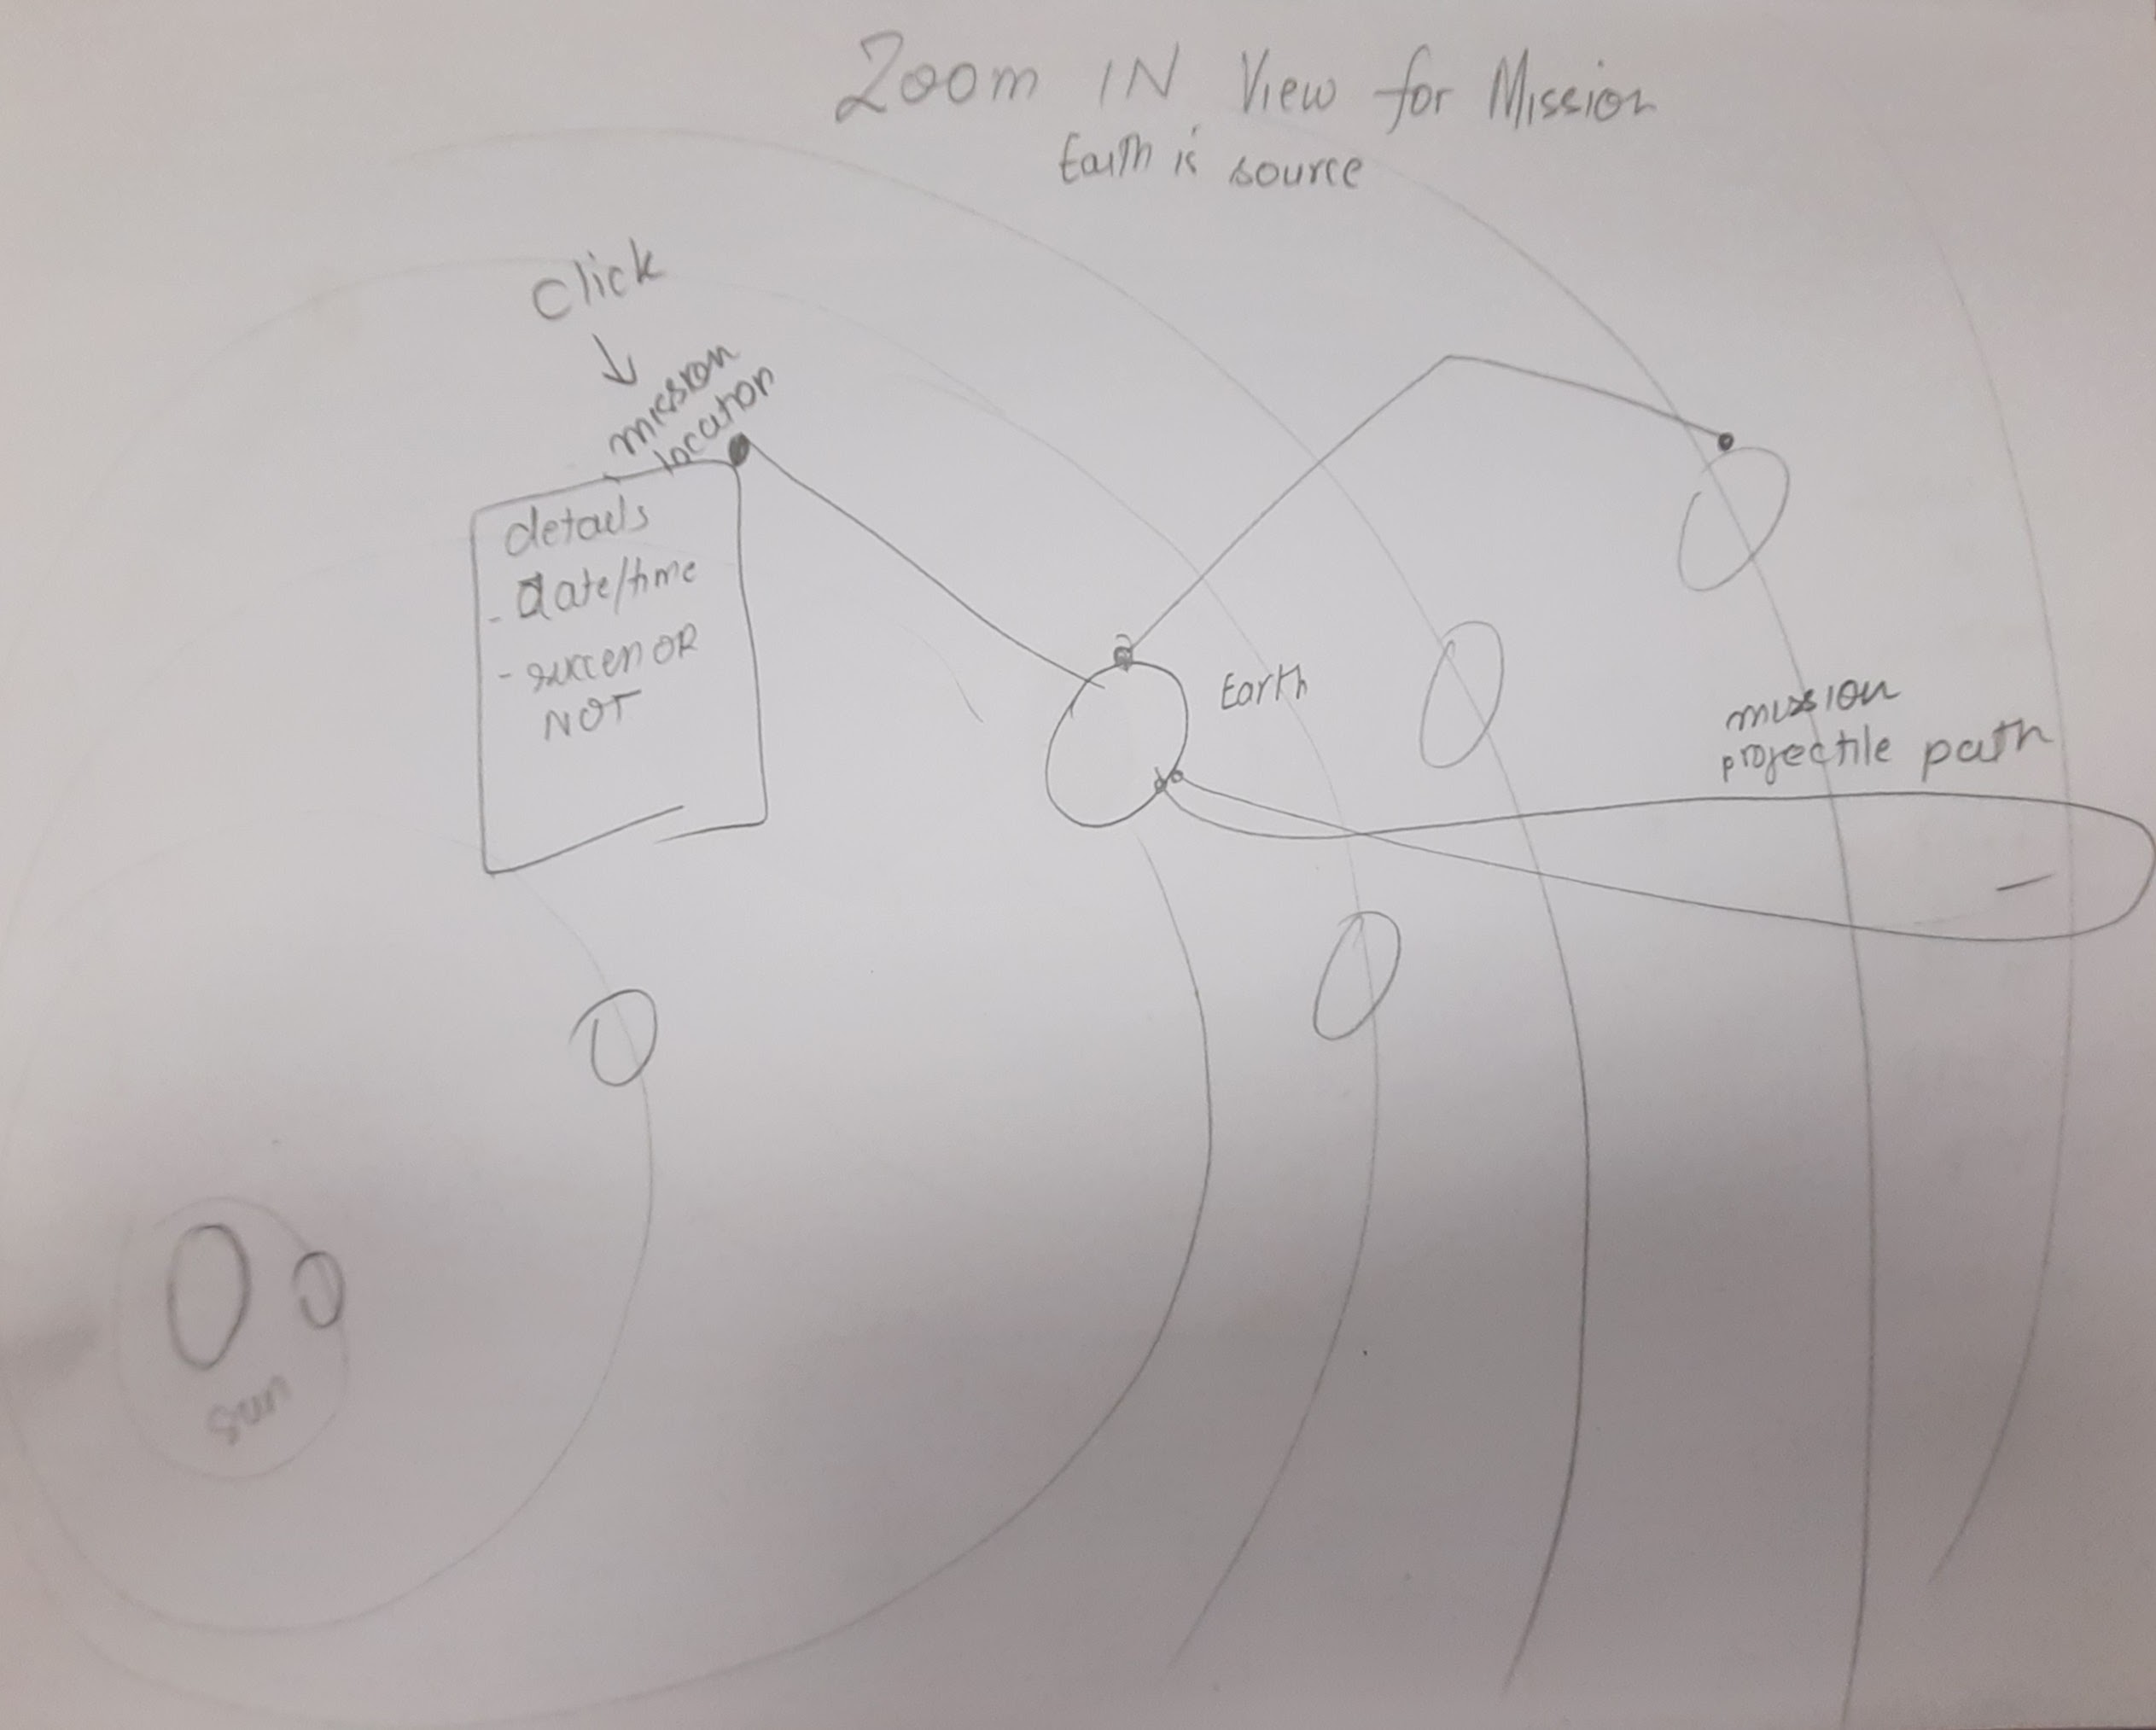 Zoom IN View for Mission
Earth is source
Click
mission
location
details
- Date/time
- success OR
NOT
Earth
mission
projectile path
sun